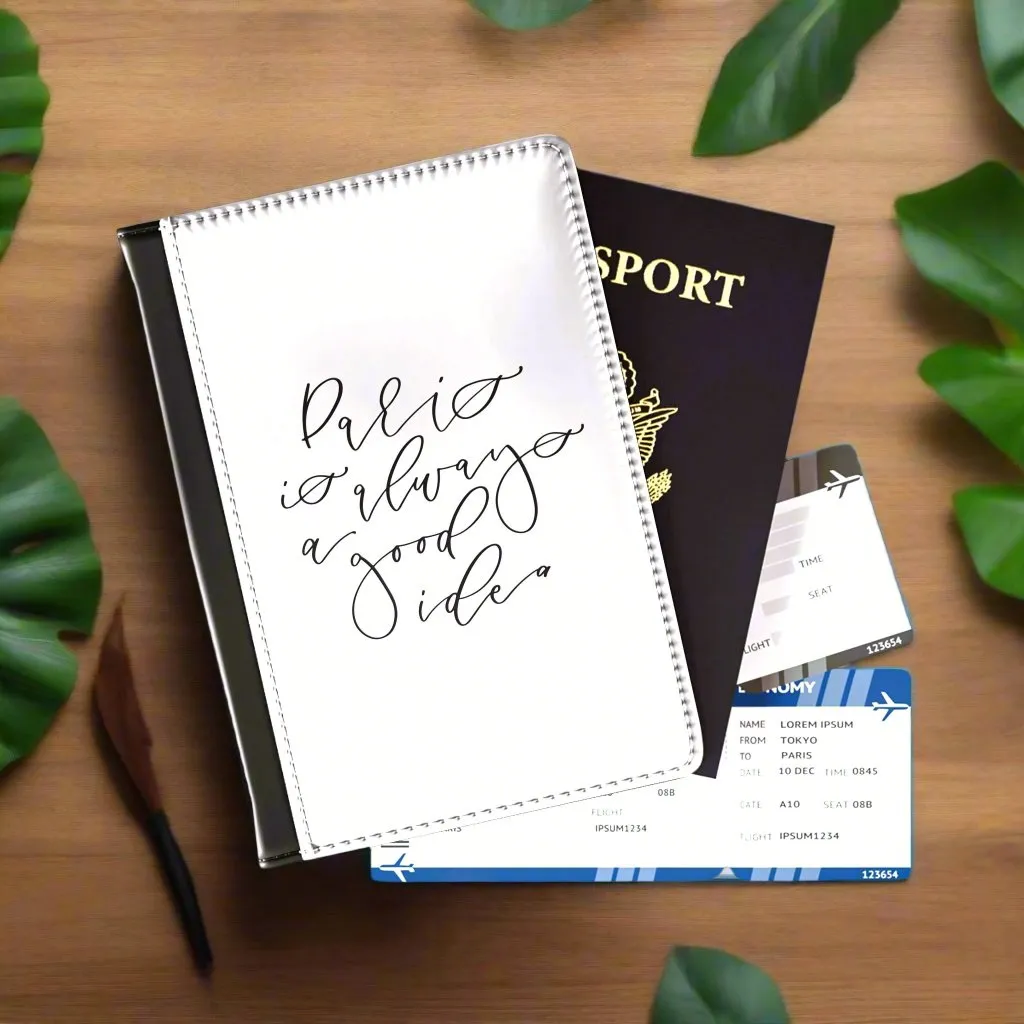 Paris
is always
a good
idea
SPORT
TIME
SEAT
LIGHT
123654
NOMY
NAME LOREM IPSUM
FROM TOKYO
TO PARIS
DATE 10 DEC TIME 0845
GATE A10 SEAT 08B
FLIGHT IPSUM1234
123654
08B
FLIGHT
IPSUM1234